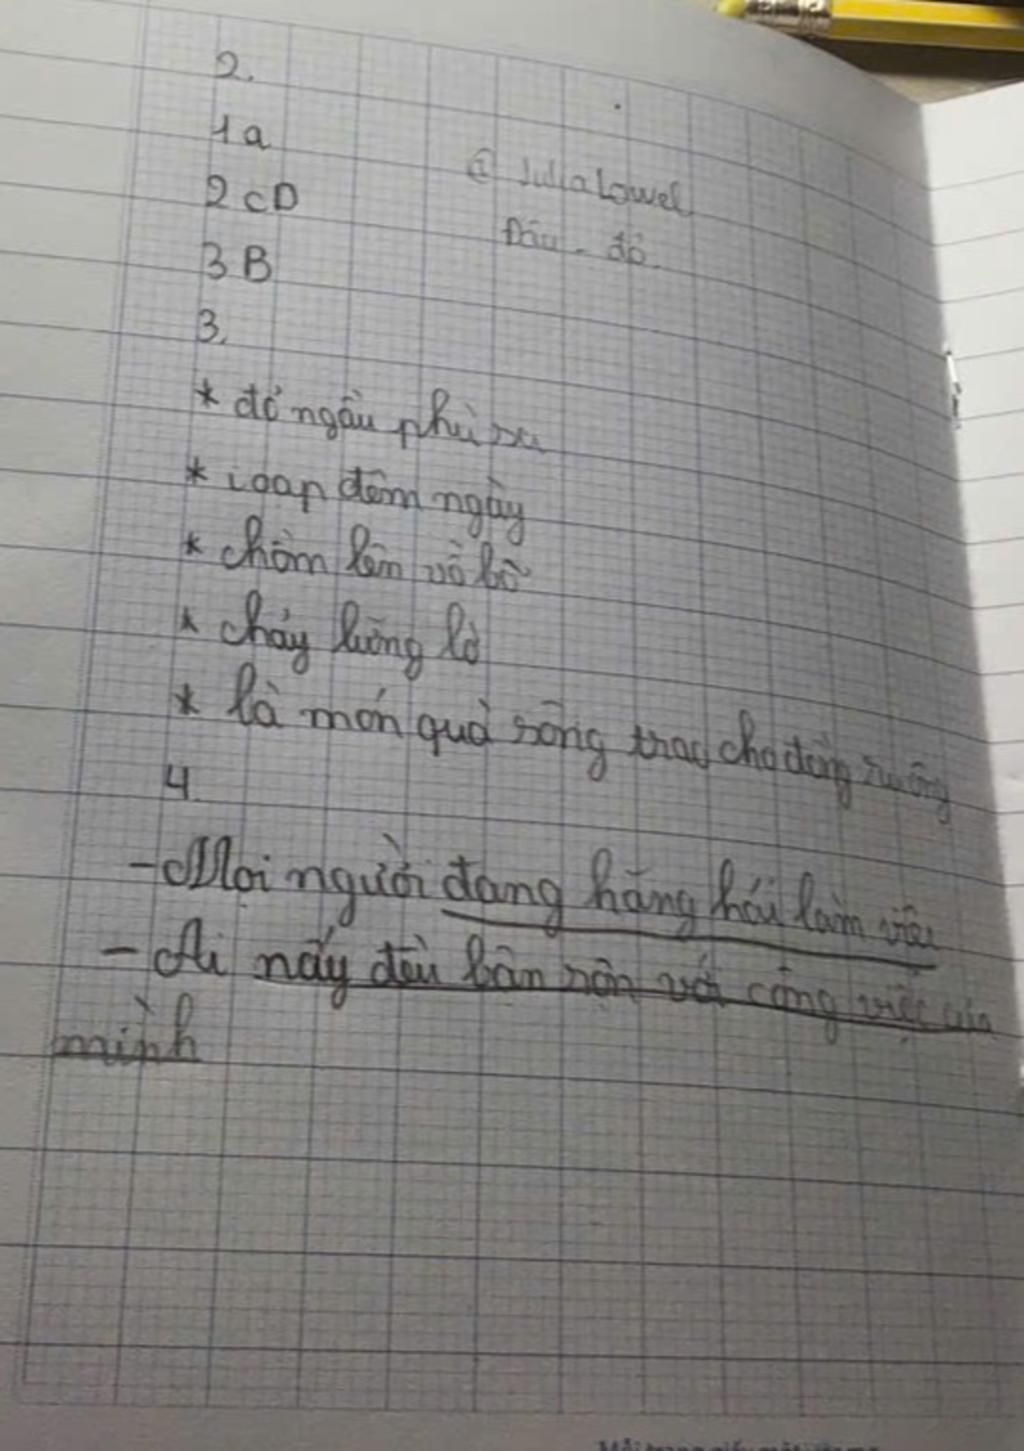 2.
1a
@ JuliaLowel
2cD
Dâu - đỏ
3B
3.
* đỏ ngầu phù sa
* đêm ngày
* chồm lên vỗ bờ
* chảy lững lờ
* là món quà sông trao cho đồng ruộng
4
- Mọi người đang hăng hái làm việc
- Ai nấy đều bận rộn với công việc của
mình